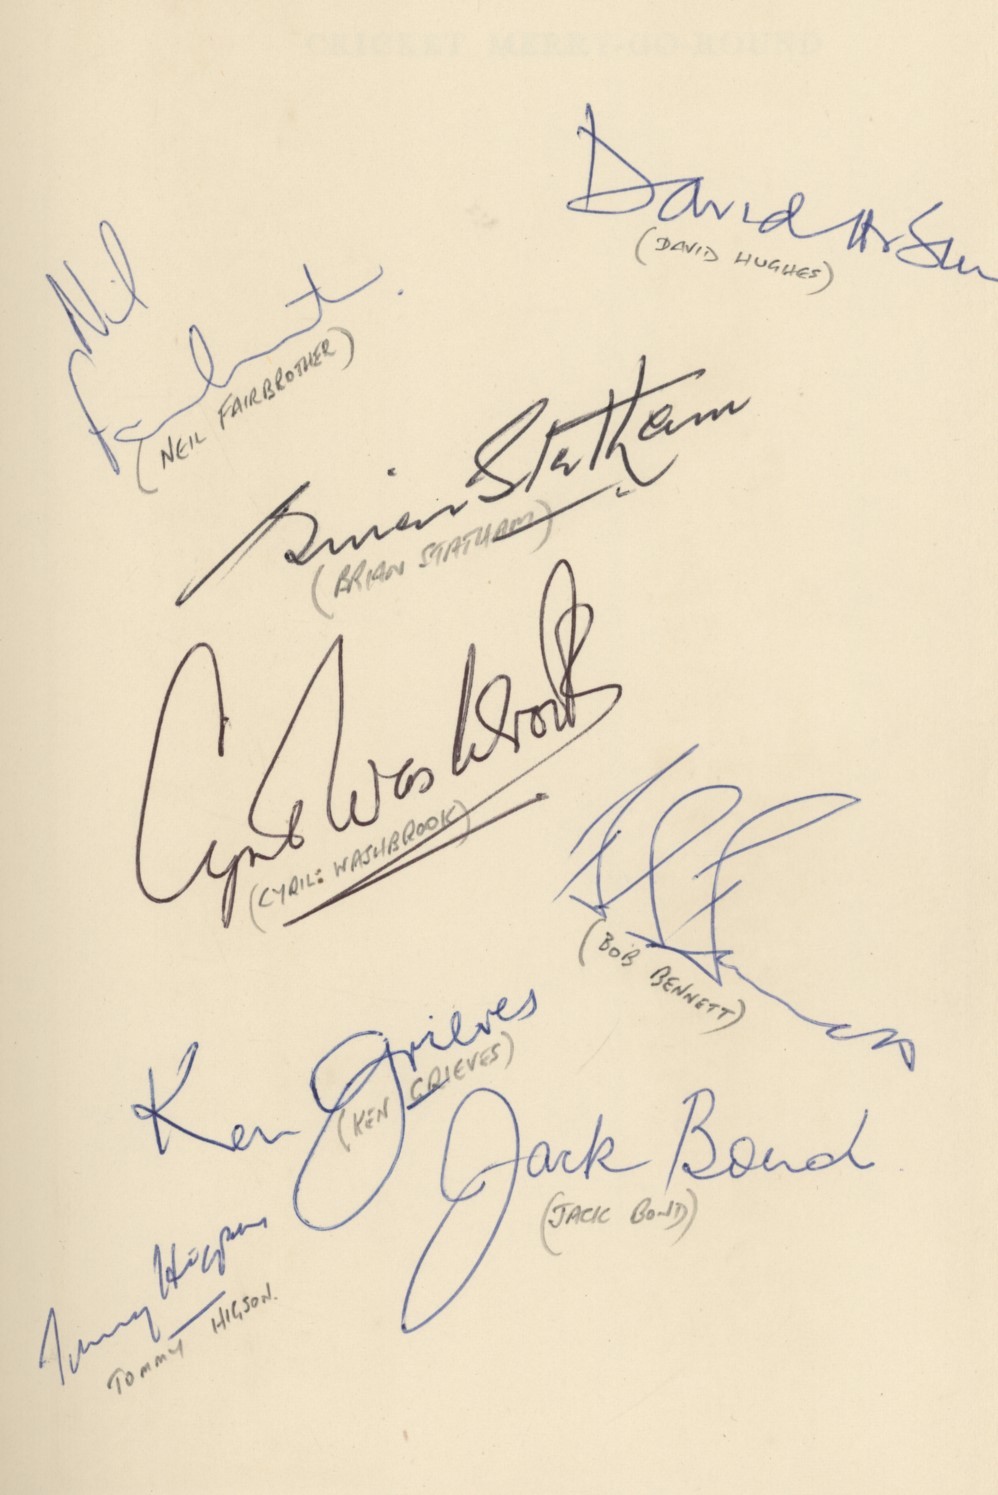 CRICKET MERRY-GO-ROUND
David Hughes
(DAVID HUGHES)
Neil
Fairbrother
(NEIL FAIRBROTHER)
Brian Statham
(BRIAN STATHAM)
Cyril Washbrook
(CYRIL: WASHBROOK)
(BOB BENNETT)
Ken Grieves
(KEN GRIEVES)
Jack Bond
(JACK BOND)
Tommy Higson
TOMMY HIGSON.